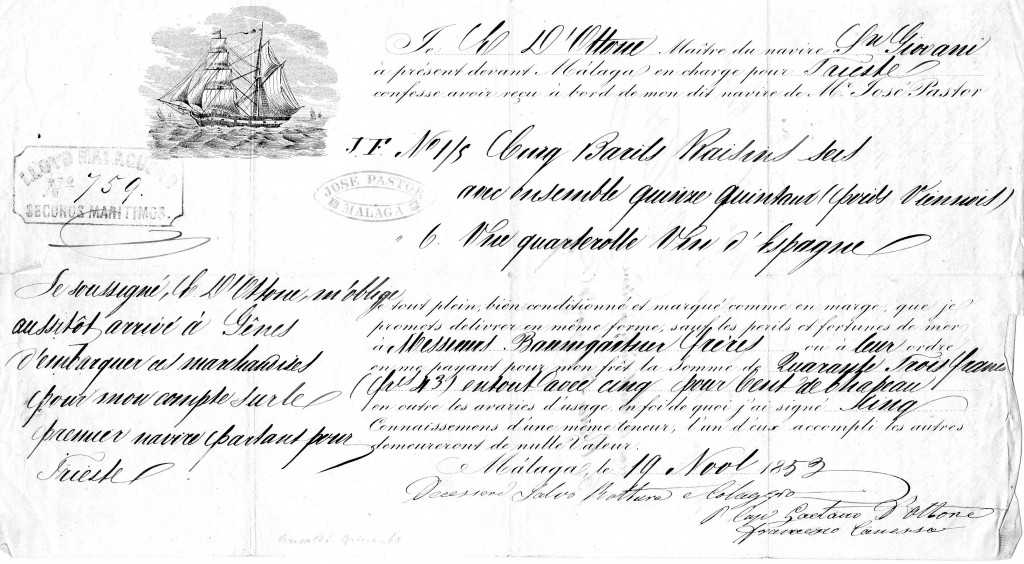 Je C D'Ottone Maître du navire Sn Giovani
à présent devant Málaga en charge pour Trieste
confesse avoir reçu à bord de mon dit navire de Mr. José Pastor
J.P. No 1/5 Cinq Barils Raisins secs
avec ensemble quinze quintaux (poids Viennois)
" 6. Une quarterolle Vin d'Espagne
LLOYD MALAGUEÑO
No. 759.
SEGUROS MARITIMOS.
JOSE PASTOR
MALAGA
Je soussigné, C D'Ottone, m'oblige
aussitôt arrivé à Gênes
d'embarquer ces marchandises
pour mon compte sur le
premier navire partant pour
Trieste
le tout plein, bien conditionné et marqué comme en marge, que je
promets délivrer en même forme, sauf les perils et fortunes de mer
à Messieurs Baumgartner frères ou à leur ordre
en me payant pour mon frêt la somme de Quarante Trois francs
(frs 43) en tout avec cinq pour Cent de Chapeau
en outre les avaries d'usage. En foi de quoi j'ai signé Cinq
Connaissemens d'une même teneur, l'un d'eux accompli les autres
demeureront de nulle Valeur.
Málaga, le 19 Novbre 1853
Salvo Rottura e Colaggio
P Cap. Gaetano D'Ottone
Francesco Canessa